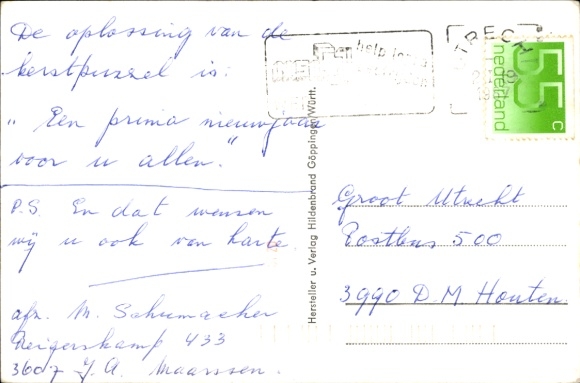 De oplossing van de
kerstpuzzel is:
„ Een prima nieuwjaar
voor u allen."
P.S. En dat wensen
wij u ook van harte.
afz. M. Schumacher
Reigerskamp 433
3607 J.A. Maarssen.
Hersteller u. Verlag Hildenbrand Göppingen/Württ.
UTRECHT
55 c
nederland
Groot Utrecht
Postbus 500
3990 D.M Houten.